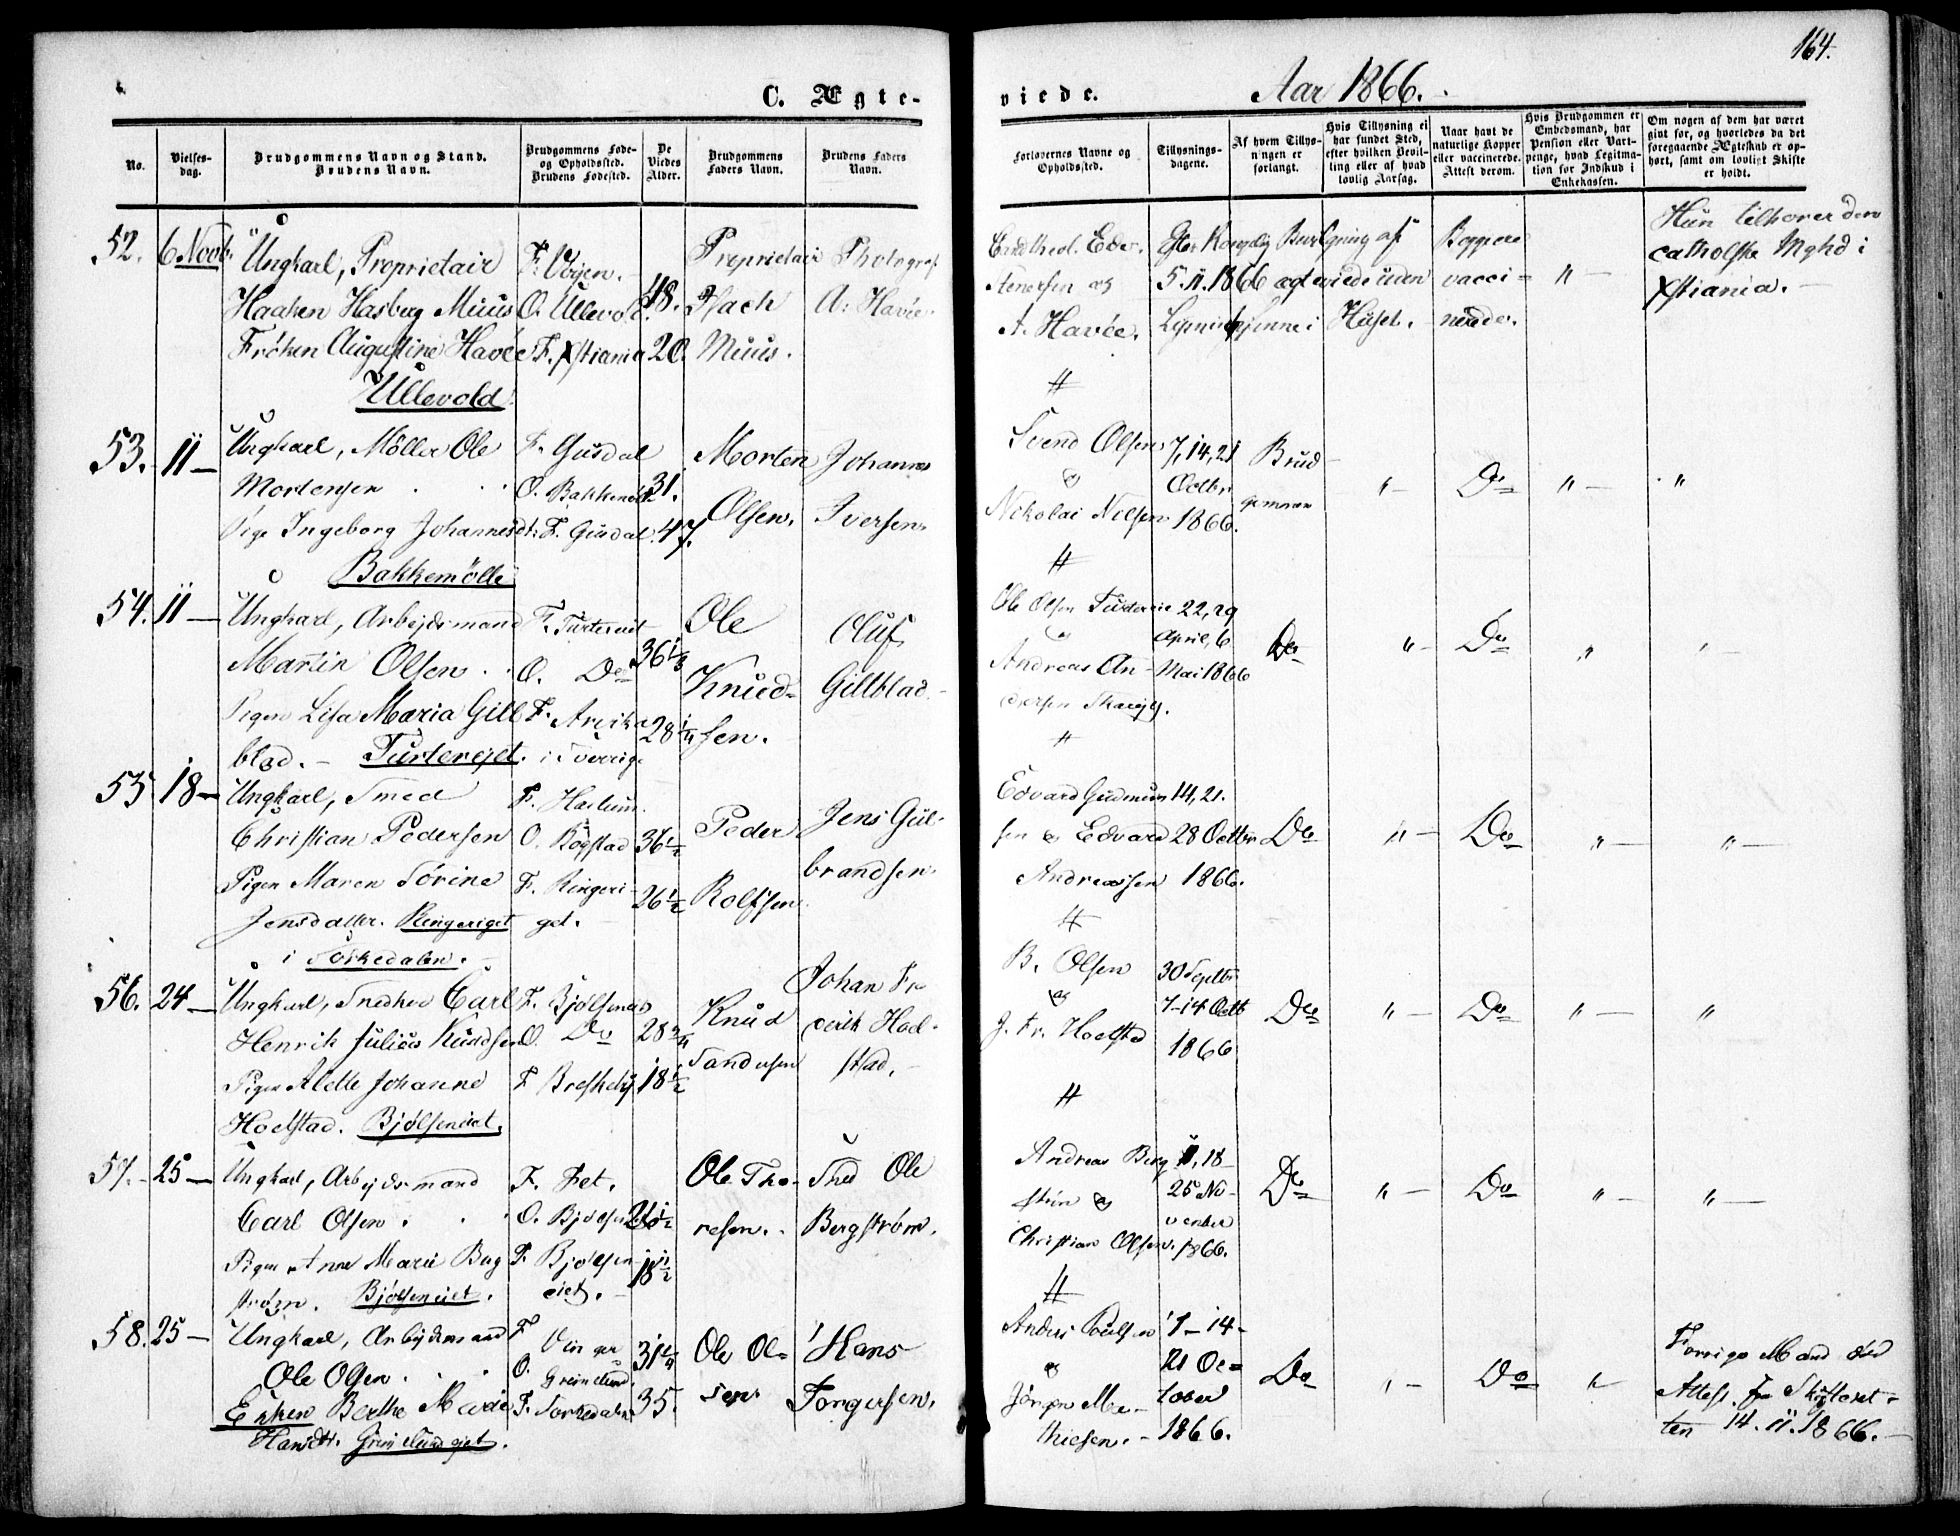 164.
C. Ægte-
viede.
Aar 1866.
No.
Vielses-
dag.
Brudgommens Navn og Stand.
Brudens Navn.
Brudgommens Føde-
og Opholdssted.
Brudens Fødested.
De
Viedes
Alder.
Brudgommens
Faders Navn.
Brudens Faders
Navn.
Forlovernes Navne og
Opholdssted.
Tillysnings-
dagene.
Af hvem Tillys-
ningen er
forlangt.
Hvis Tillysning ei
har fundet Sted,
efter hvilken Bevil-
ling eller af hvad
lovlig Aarsag.
Naar havt de
naturlige Kopper
eller vaccinerede.
Attest derom.
Hvis Brudgommen er
Embedsmand, har
Pension eller Vart-
penge, hvad Legitima-
tion for Indskud i
Enkekassen.
Om nogen af dem har været
gift før, og hvorledes da det
foregaaende Ægteskab er op-
hørt, samt om lovligt Skifte
er holdt.
52. 6 Novb.
Ungkarl, Proprietair
Haaken Hasberg Muus
Frøken Augustine Havée
Ullevold
F. Vøjen.
O. Ullevold
F. Xstiania
48.
20.
Proprietair
Hach
Muus.
Photograf
A. Havée.
Cand. theol. Edv.
Stenersen og
A. Havée.
Efter Kongelig Bevilgning af
5.11.1866 ægteviede uden
Lysning hjemme i Huset.
Begge
vacci-
nerede.
"
Hun tilhører den
catholske Mghd i
Xstiania.
53. 11 —
Ungkarl, Møller Ole
Mortensen
Pige Ingeborg Johannesdt.
Bakkemølle
F. Gusdal
O. Bakkemølle
F. Gusdal
31.
47.
Morten
Olsen.
Johannes
Iversen.
Svend Olsen
og
Nikolai Nilsen
7, 14, 21
Octbr.
1866.
Brud-
gommen
" Do " "
54. 11 —
Ungkarl, Arbejdsmand
Martin Olsen
Pigen Lisa Maria Gill
blad. — Turterejet.
F. Turtereiet
O. Do
F. Arvika
i Sverrig
36
28
Ole
Knud-
sen.
Oluf
Gillblad.
Ole Olsen Turtereie
og
Andreas An-
dersen
22, 29
April, 6
Mai 1866
Do " Do "
55. 18 —
Ungkarl, Smed
Christian Pedersen
Pigen Maren Sørine
Jensdatter. Ringeriget
i Sørkedalen.
F. Haslum.
O. Bogstad
F. Ringeri-
get.
36 1/2
26 1/2
Peder
Rolfsen
Jens Gul-
brandsen.
Edvard Gudmun
sen og Edvard
Andreassen
14, 21.
28 Octbr
1866.
Do " Do " "
56. 24 —
Ungkarl, Snedker Carl
Henrik Julius Knudsen
Pigen Alette Johanne
Hoelstad. Bjølseneiet.
F. Bjølseneie
O. Do
F.
28
18 1/2
Knud
Sandersen
Johan Fre
derik Hoel-
stad.
B. Olsen
og
J. Fr. Hoelstad
30 Septbr
7-14 Octb
1866
Do " Do " "
57. 25 —
Ungkarl, Arbejdsmand
Carl Olsen
Pigen Anne Marie Berg
strøm. Bjølseneiet.
F. Fet.
O. Bjølsen
F. Bjølsen
eiet.
18 1/2
Ole Tho-
resen.
Ole
Bergstrøm.
Andreas Berg
strøm og
Christian Olsen
11, 18
25 No-
vember
1866.
Do " Do " "
58. 25 —
Ungkarl, Arbejdsmand
Ole Olsen
Enken Berthe Marie
Hansdtr. Grimelundejet.
F. Vinger
O. Grimelund
F. Sørkedalen
31
35.
Ole Ol-
sen
Hans
Torgersen.
Anders Poulsen
og
Jørgen Ma-
thiesen.
7-14-
21 Oc-
tober
1866.
Do " Do "
Forrige Mand død
Attest fra Skifteret-
ten 14.11.1866.